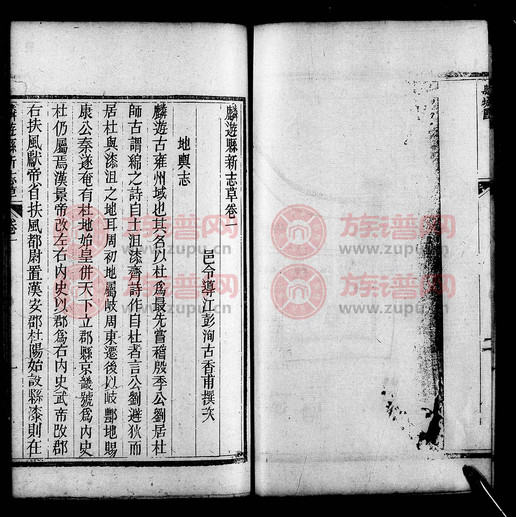 麟遊縣新志草卷一
邑令導江彭洵古香甫撰次
地輿志
麟遊古雍州域也其名以杜為最先嘗稽殷季公劉居杜
師古謂綿之詩自土沮漆齊詩作自杜者言公劉避狄而
居杜與漆沮之地耳周初地屬岐周東遷後以岐酆地賜
康公秦遂奄有杜地始皇併天下立郡縣京畿號為內史
杜仍屬焉漢景帝改左右內史以郡為右內史武帝改郡
右扶風獻帝省扶風都尉置漢安郡杜陽始設縣漆則在
麟遊縣新志草
卷一
一
族谱网
www.zupu.cn
族谱网
www.zupu.cn
族谱网
www.zupu.cn
族谱网
www.zupu.cn